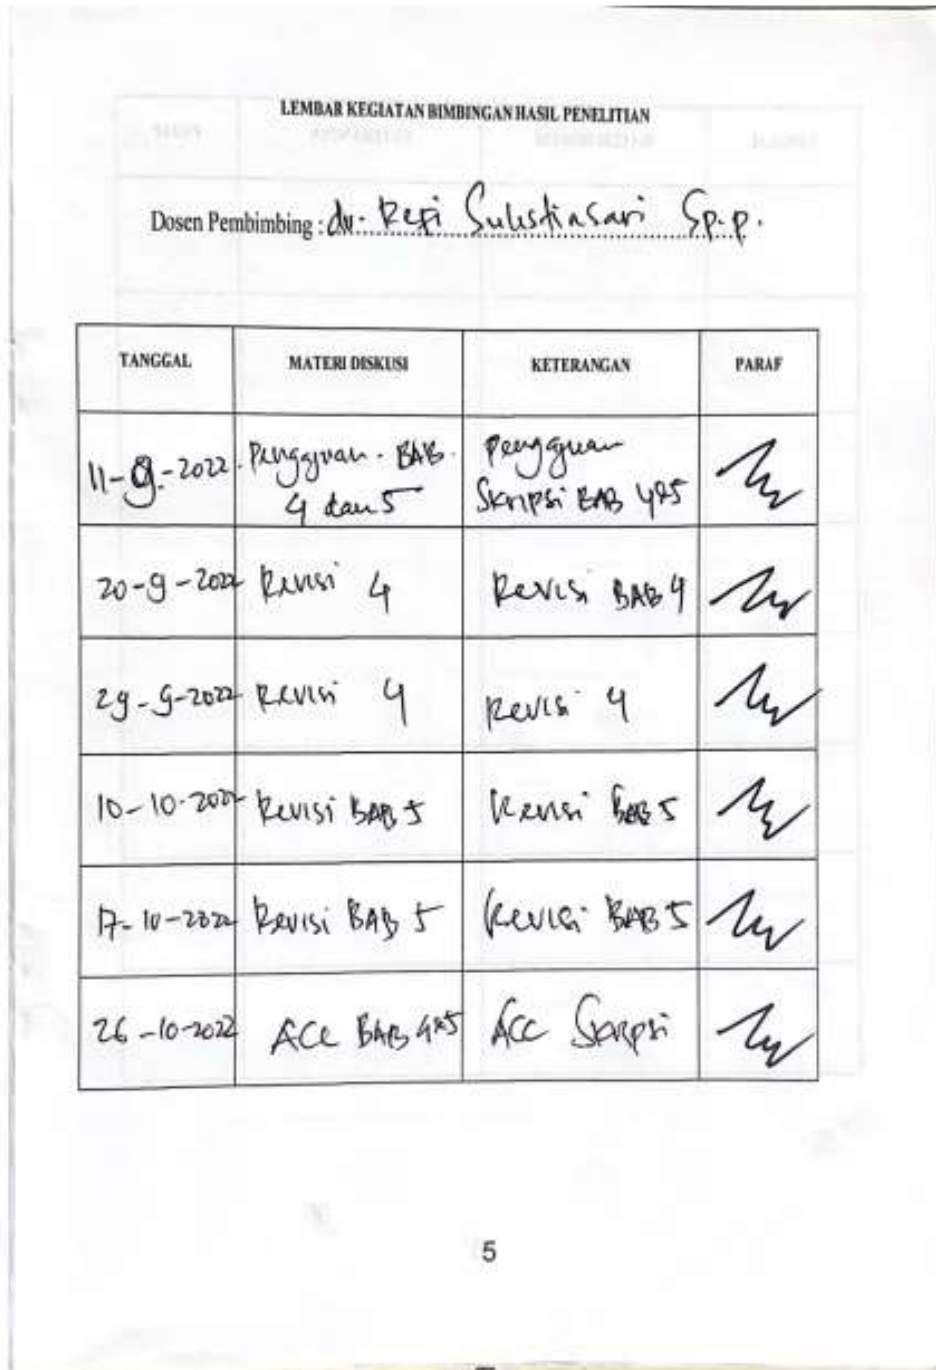 LEMBAR KEGIATAN BIMBINGAN HASIL PENELITIAN
Dosen Pembimbing : dr. Refi Sulistiasari Sp.p.
TANGGAL MATERI DISKUSI KETERANGAN PARAF
11-9-2022 Pengajuan BAB 4 dan 5 Pengajuan Skripsi BAB 4&5
20-9-2022 Revisi 4 Revisi BAB 4
29-9-2022 Revisi 4 Revisi 4
10-10-2022 Revisi BAB 5 Revisi BAB 5
17-10-2022 Revisi BAB 5 Revisi BAB 5
26-10-2022 ACC BAB 4&5 ACC Skripsi
5